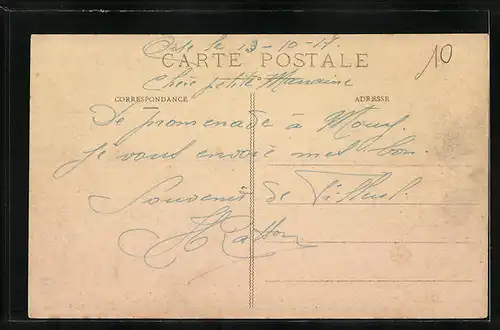 le 13-10-17.
CARTE POSTALE
Chère petite Marraine
CORRESPONDANCE
ADRESSE
De promenade à
je vous envoie mes bon
Souvenir de
10